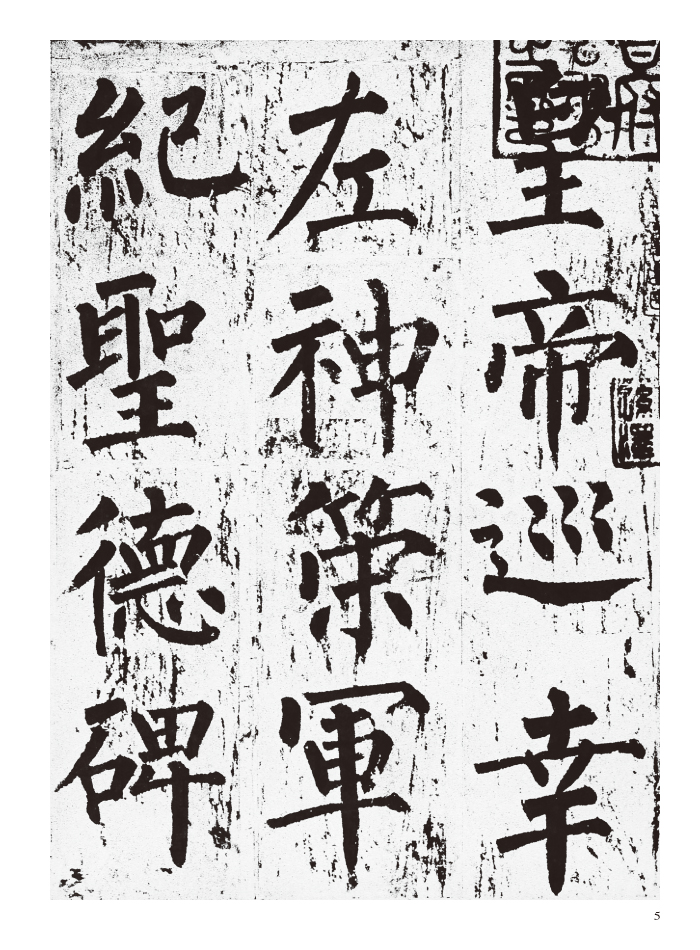 皇帝巡幸
左神策軍
紀聖德碑
5